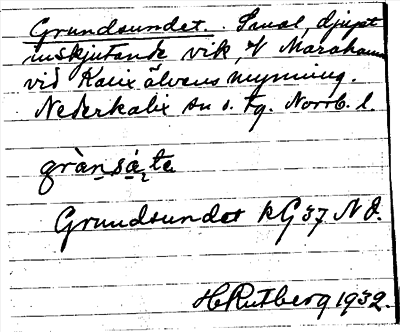 Grundsundet. Smal, djupt
inskjutande vik, Marahamn
vid Kalix älvens mynning.
Nederkalix sn o. tg. Norrb. l.
gràn̠sá̠te
Grundsundet kG37 NJ.
H Rutberg 1932.